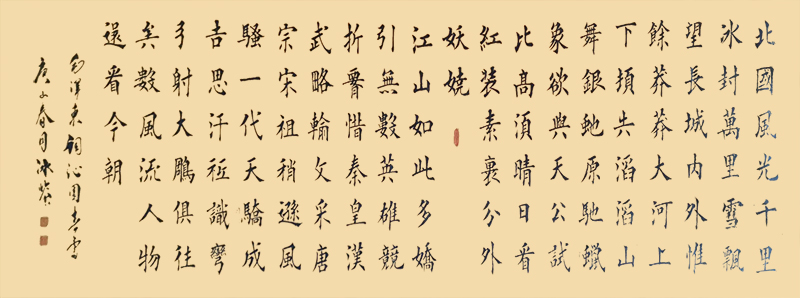 北國風光千里
冰封萬里雪飄
望長城内外惟
餘莽莽大河上
下頓失滔滔山
舞銀虵原馳蠟
象欲與天公試
比高須晴日看
紅裝素裹分外
妖嬈
江山如此多嬌
引無數英雄競
折腰惜秦皇漢
武略輸文采唐
宗宋祖稍遜風
騷一代天驕成
吉思汗祗識彎
弓射大鵰俱往
矣數風流人物
還看今朝
毛澤東詞沁園春雪
庚子春月冰